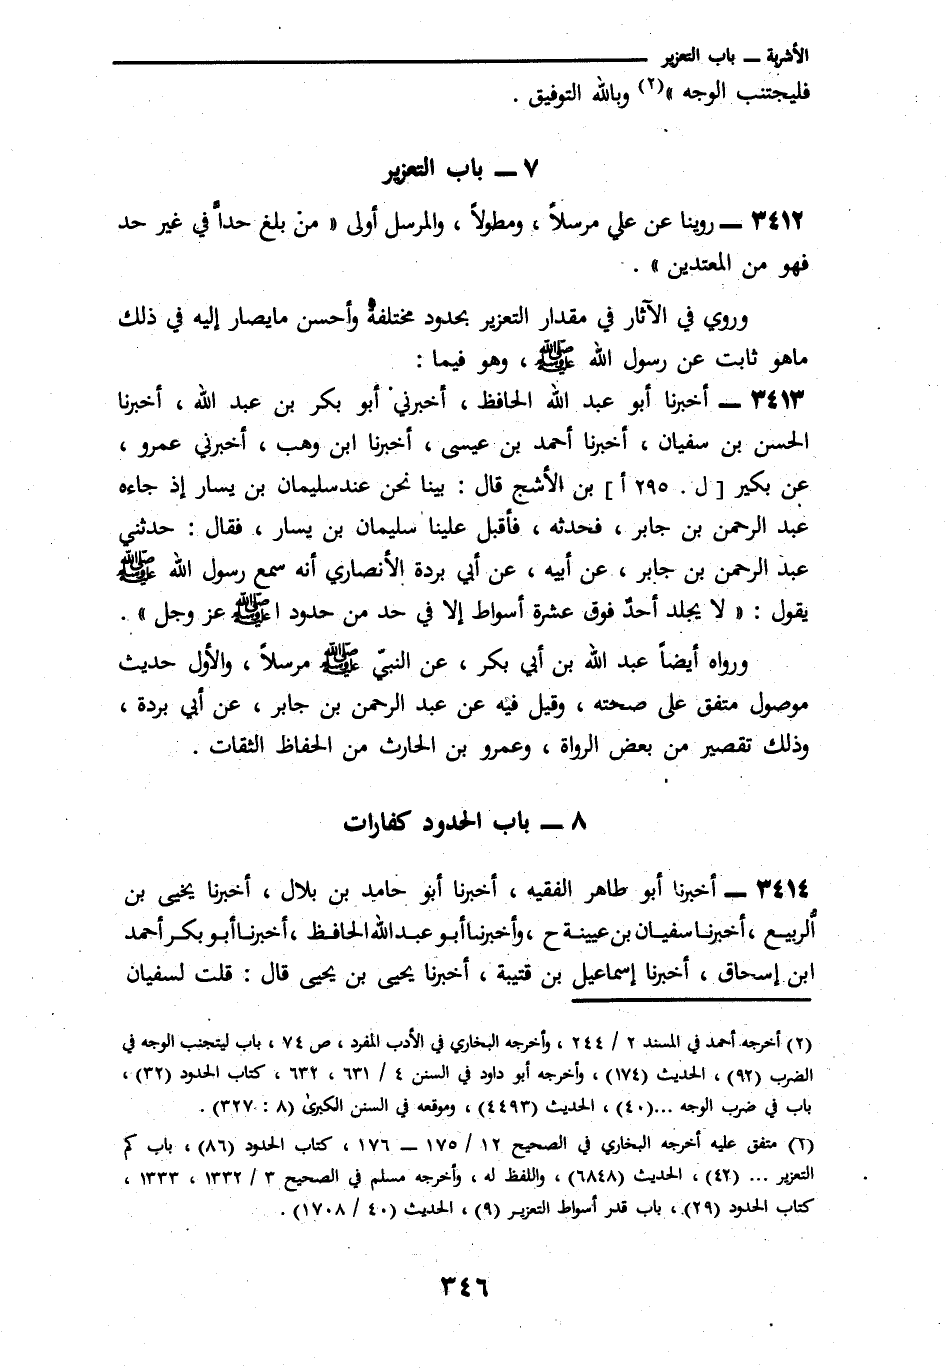 الأشربة ــ باب التعزير
فليجتنب الوجه »(٢) وبالله التوفيق .
٧ ــ باب التعزير
٣٤١٢ ــ روينا عن علي مرسلاً ، ومطولاً ، والمرسل أولى « منْ بلغ حداً في غير حد
فهو من المعتدين » .
وروي في الآثار في مقدار التعزير بحدود مختلفة وأحسن مايصار إليه في ذلك
ماهو ثابت عن رسول الله ﷺ ، وهو فيما :
٣٤١٣ ــ أخبرنا أبو عبد الله الحافظ ، أخبرني أبو بكر بن عبد الله ، أخبرنا
الحسن بن سفيان ، أخبرنا أحمد بن عيسى ، أخبرنا ابن وهب ، أخبرني عمرو ،
عن بكير [ ل . ٢٩٥ أ ] بن الأشج قال : بينا نحن عندسليمان بن يسار إذ جاءه
عبد الرحمن بن جابر ، فحدثه ، فأقبل علينا سليمان بن يسار ، فقال : حدثني
عبد الرحمن بن جابر ، عن أبيه ، عن أبي بردة الأنصاري أنه سمع رسول الله ﷺ
يقول : « لا يجلد أحدٌ فوق عشرة أسواط إلا في حد من حدود اﷺ عز وجل » .
ورواه أيضاً عبد الله بن أبي بكر ، عن النبيّ ﷺ مرسلاً ، والأول حديث
موصول متفق على صحته ، وقيل فيه عن عبد الرحمن بن جابر ، عن أبي بردة ،
وذلك تقصير من بعض الرواة ، وعمرو بن الحارث من الحفاظ الثقات .
٨ ــ باب الحدود كفارات
٣٤١٤ ــ أخبرنا أبو طاهر الفقيه ، أخبرنا أبو حامد بن بلال ، أخبرنا يحيى بن
الربيع ، أخبرنا سفيان بن عيينة ح ، وأخبرنا أبو عبد الله الحافظ ، أخبرنا أبو بكر أحمد
ابن إسحاق ، أخبرنا إسماعيل بن قتيبة ، أخبرنا يحيى بن يحيى قال : قلت لسفيان
(٢) أخرجه أحمد في المسند ٢ / ٢٤٤ ، وأخرجه البخاري في الأدب المفرد ، ص ٧٤ ، باب ليتجنب الوجه في
الضرب (٩٢) ، الحديث (١٧٤) ، وأخرجه أبو داود في السنن ٤ / ٦٣١ ، ٦٣٢ ، كتاب الحدود (٣٢) ،
باب في ضرب الوجه ...(٤٠) ، الحديث (٤٤٩٣) ، وموقعه في السنن الكبرىٰ (٨ : ٣٢٧) .
(٢) متفق عليه أخرجه البخاري في الصحيح ١٢ / ١٧٥ ــ ١٧٦ ، كتاب الحدود (٨٦) ، باب كم
التعزير ... (٤٢) ، الحديث (٦٨٤٨) ، واللفظ له ، وأخرجه مسلم في الصحيح ٣ / ١٣٣٢ ، ١٣٣٣ ،
كتاب الحدود (٢٩) ، باب قدر أسواط التعزير (٩) ، الحديث (٤٠ / ١٧٠٨) .
٣٤٦